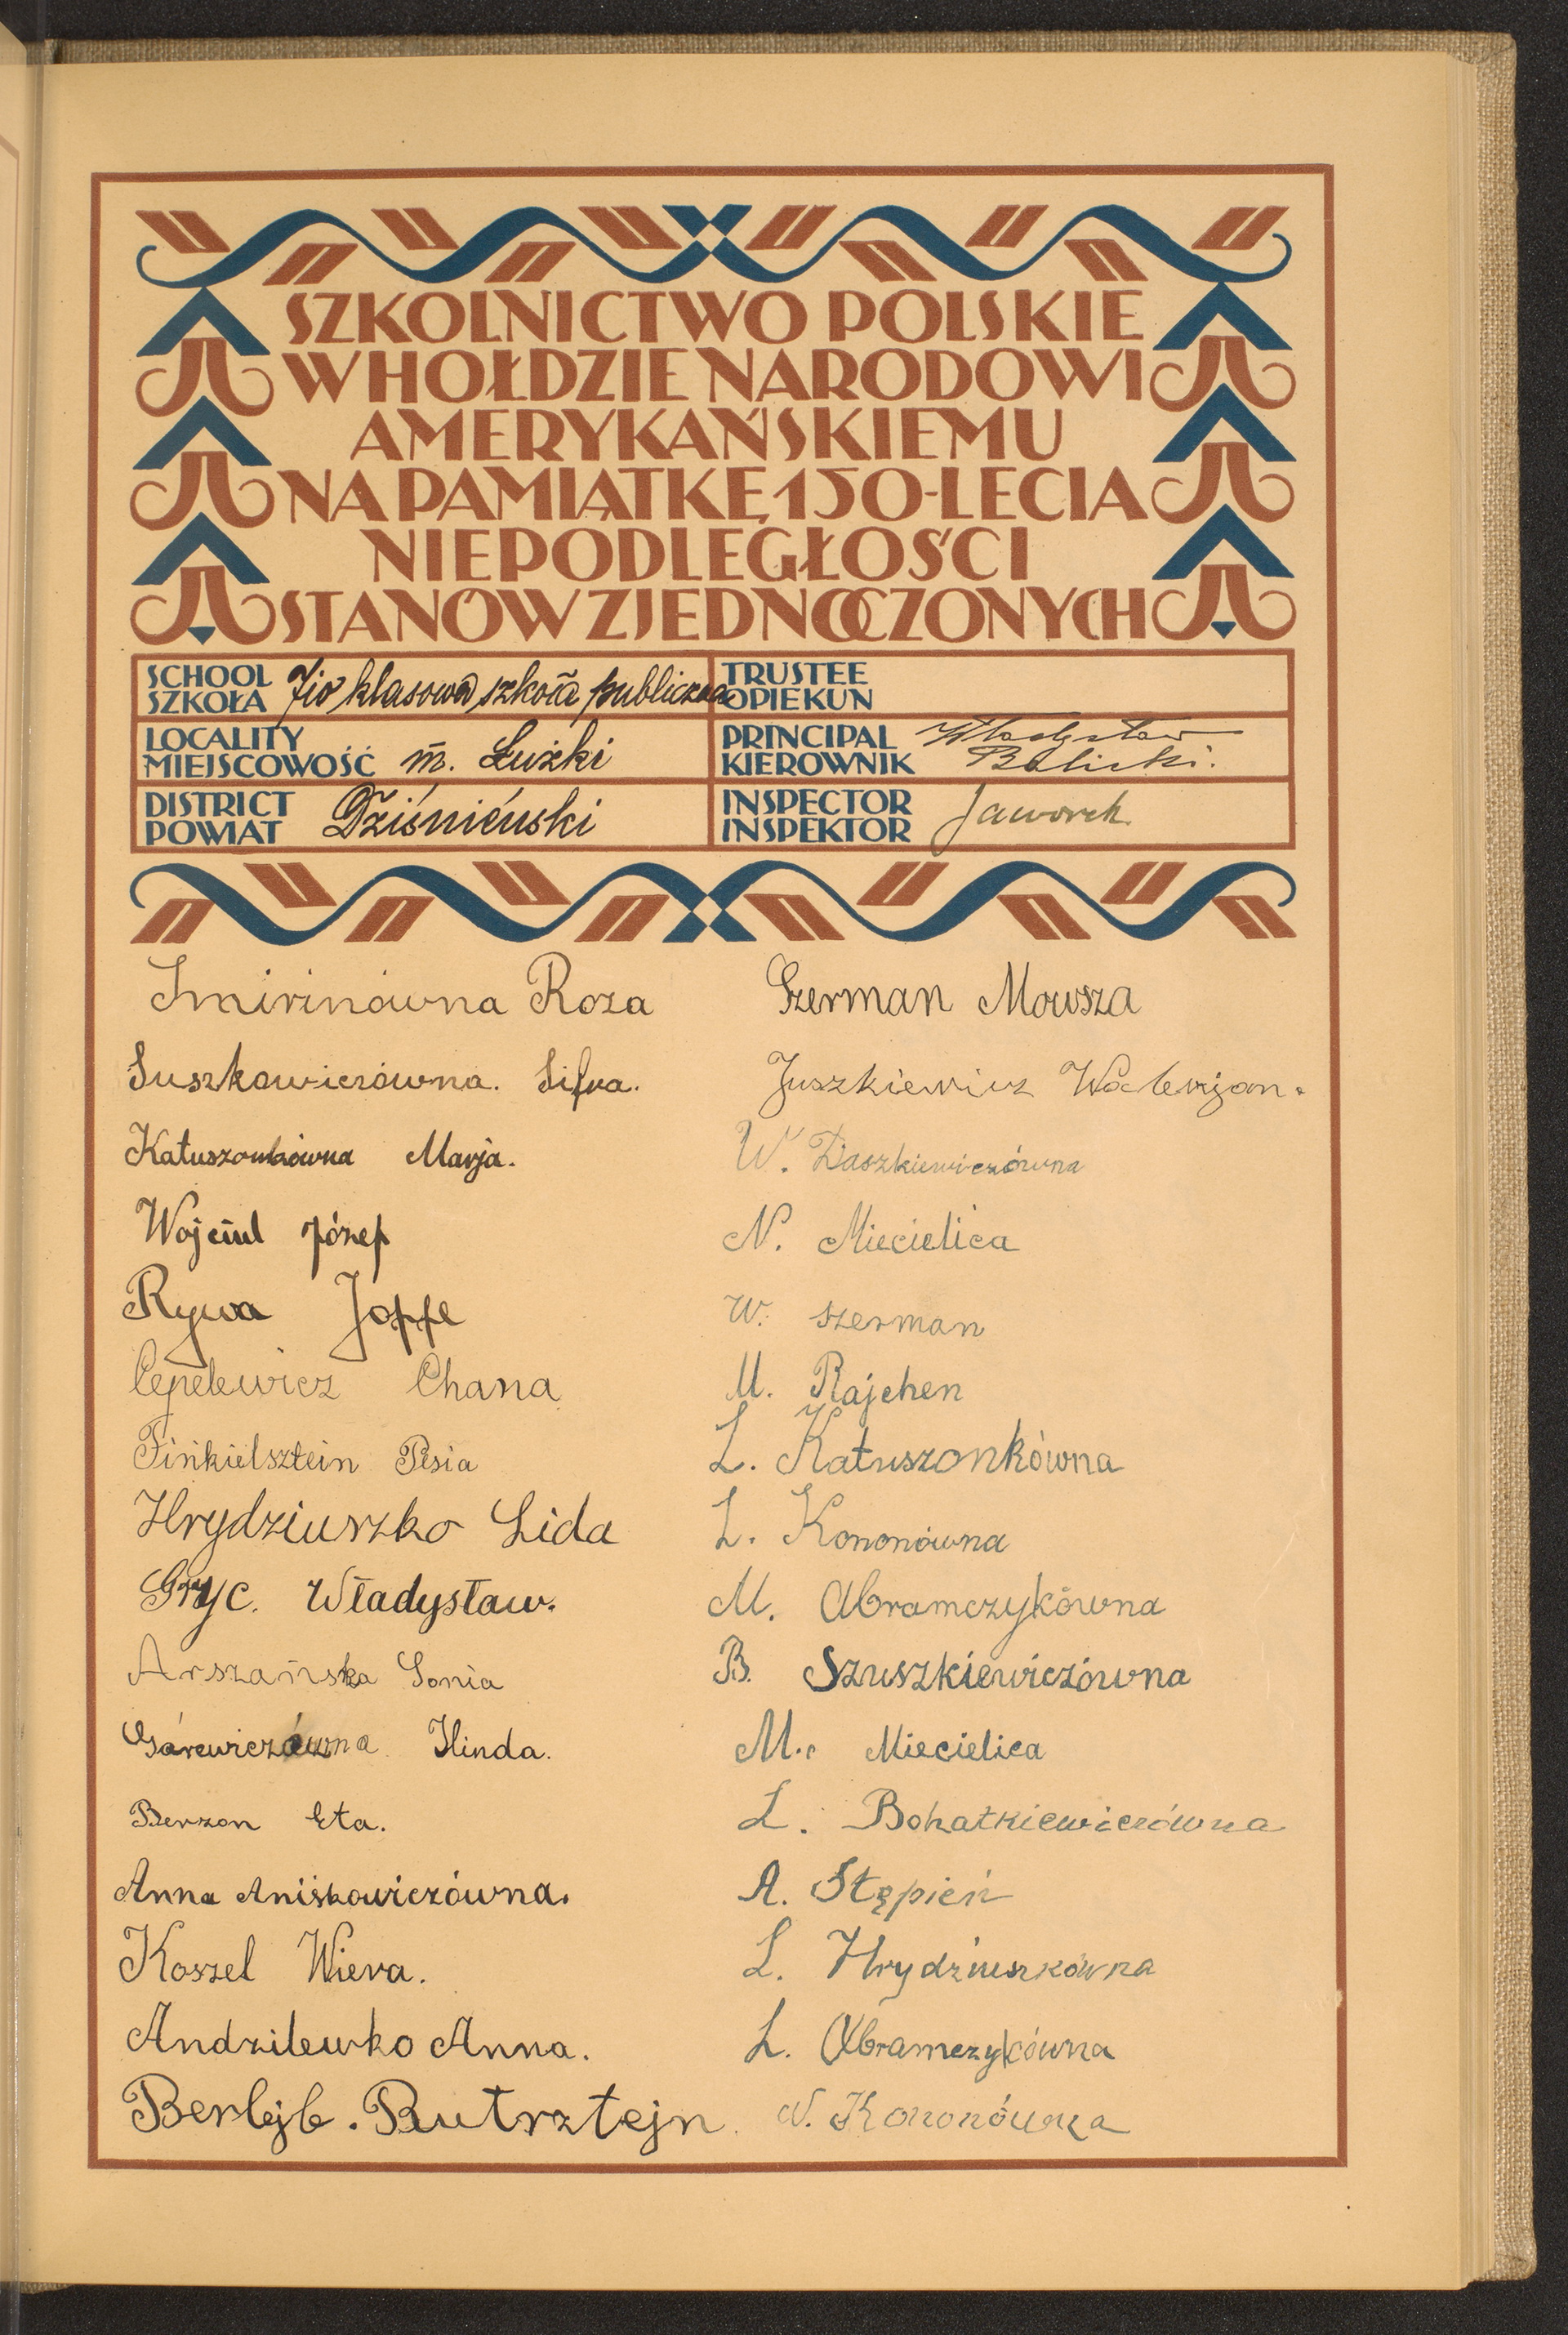 SZKOLNICTWO POLSKIE
W HOŁDZIE NARODOWI
AMERYKAŃSKIEMU
NA PAMIĄTKĘ 150-LECIA
NIEPODLEGŁOŚCI
STANÓW ZJEDNOCZONYCH
SCHOOL
SZKOŁA 7io klasowa szkoła publiczna
TRUSTEE
OPIEKUN
LOCALITY
MIEJSCOWOŚĆ m. Łużki
PRINCIPAL Władysław
KIEROWNIK Balicki.
DISTRICT
POWIAT Dziśnieński
INSPECTOR
INSPEKTOR Jaworek
Smirinówna Roza
Suszkowiczówna. Sifra.
Katuszonkówna Marja.
Wojciul Józef
Rywa Joffe
Cepelewicz Chana
Finkielsztein Pesia
Hrydziuszko Lida
Gryc. Władysław.
Arszańska Sonia
Gárewiczówna Hinda.
Berzon Eta.
Anna Aniśkowiczówna.
Koszel Wiera.
Andzilewko Anna.
Berlejb. Rutsztejn.
Szerman Mowsza
Juszkiewicz Walerjan.
W. Daszkiewiczówna
N. Miecielica
W. Szerman
M. Rajchen
L. Katuszonkówna
L. Kononówna
M. Abramczykówna
B. Szuszkiewiczówna
M. Miecielica
L. Bohatkiewiczówna
A. Stępień
L. Hrydziuszkówna
L. Abramczykówna
N. Kononówna